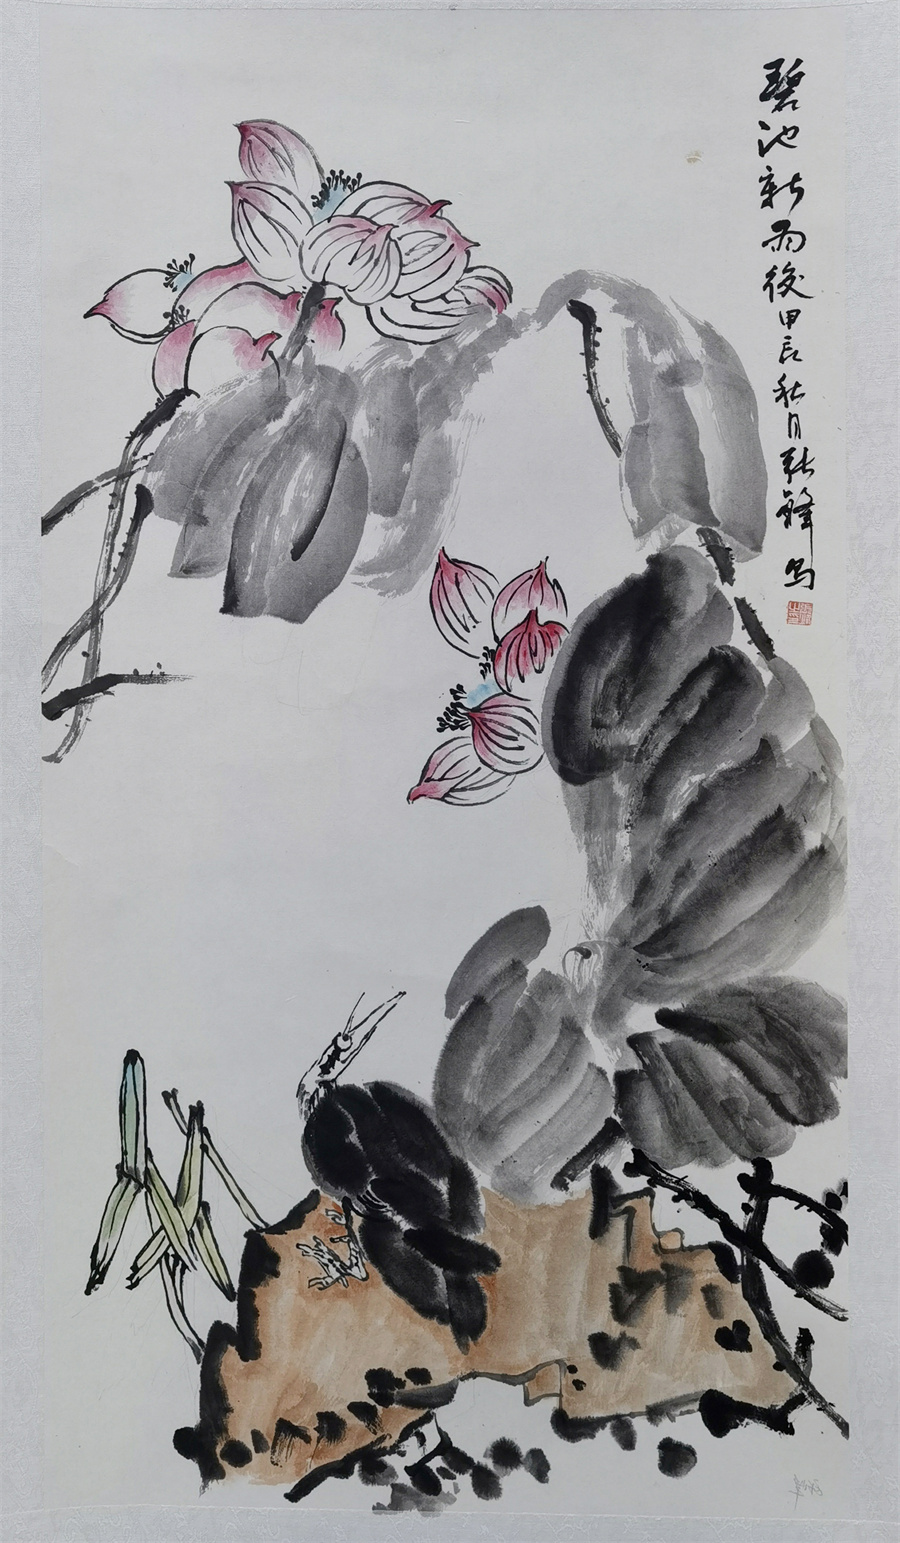 碧池新雨後甲辰秋月張鋒写